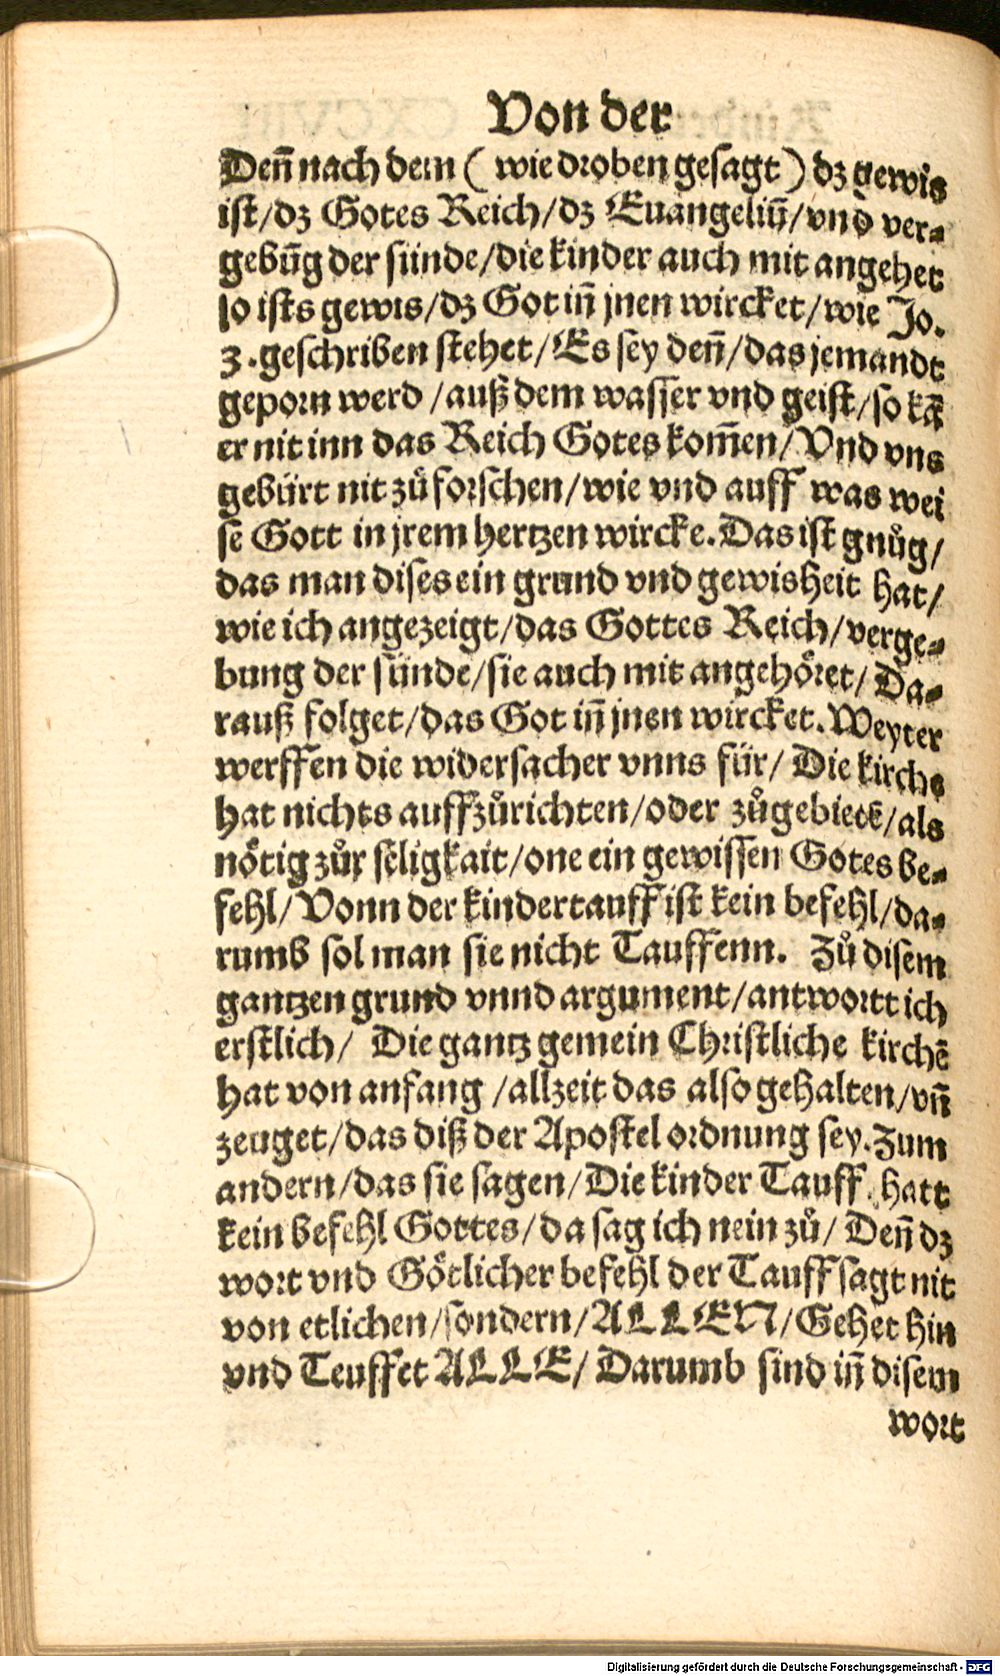 Von der
Deñ nach dem ( wie droben gesagt ) dz gewis
ist/dz Gotes Reich/dz Euangeliũ/vnd ver-
gebũg der sünde/die kinder auch mit angehet
so ists gewis/dz Got iñ jnen wircket/wie Jo.
3. geschriben stehet/Es sey deñ/das jemandt
geporn werd /auß dem wasser vnd geist/so kã
er nit inn das Reich Gotes kom̃en/Vnd vns
gebürt nit zů forschen/wie vnd auff was wei
se Gott in jrem hertzen wircke. Das ist gnůg/
das man dises ein grund vnd gewisheit hat/
wie ich angezeigt/das Gottes Reich/verge-
bung der sünde/sie auch mit angehöret/Da-
rauß folget/das Got iñ jnen wircket. Weyter
werffen die widersacher vnns für/ Die kirche
hat nichts auffzůrichten/oder zůgebietẽ/als
nötig zůr seligkait/one ein gewissen Gotes be-
fehl/Vonn der kindertauff ist kein befehl/da-
rumb sol man sie nicht Tauffenn. Zů disem
gantzen grund vnnd argument/antwortt ich
erstlich/ Die gantz gemein Christliche kirchẽ
hat von anfang /allzeit das also gehalten/vñ
zeuget/das diß der Apostel ordnung sey. Zum
andern/das sie sagen/Die kinder Tauff hatt
kein befehl Gottes/da sag ich nein zů/ Deñ dz
wort vnd Götlicher befehl der Tauff sagt nit
von etlichen/sondern/ALLEN/Gehet hin
vnd Teuffet ALLE/ Darumb sind iñ disem
wort
Digitalisierung gefördert durch die Deutsche Forschungsgemeinschaft - DFG